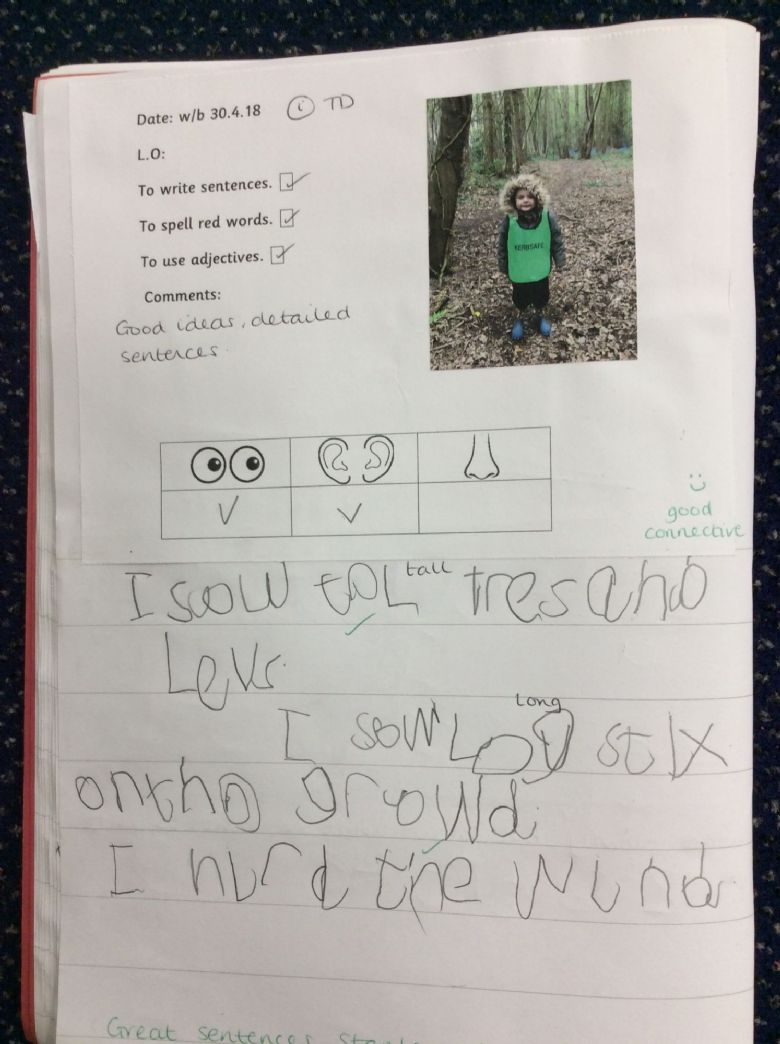 Date: w/b 30.4.18 i TD
L.O:
To write sentences.
To spell red words.
To use adjectives.
Comments:
Good ideas, detailed
sentences.
KERBSAFE
good
connective
tall
I sow tol tres and
Levs.
long
I sow Log stix
ontho growd.
I hurd the wund
Great sentences